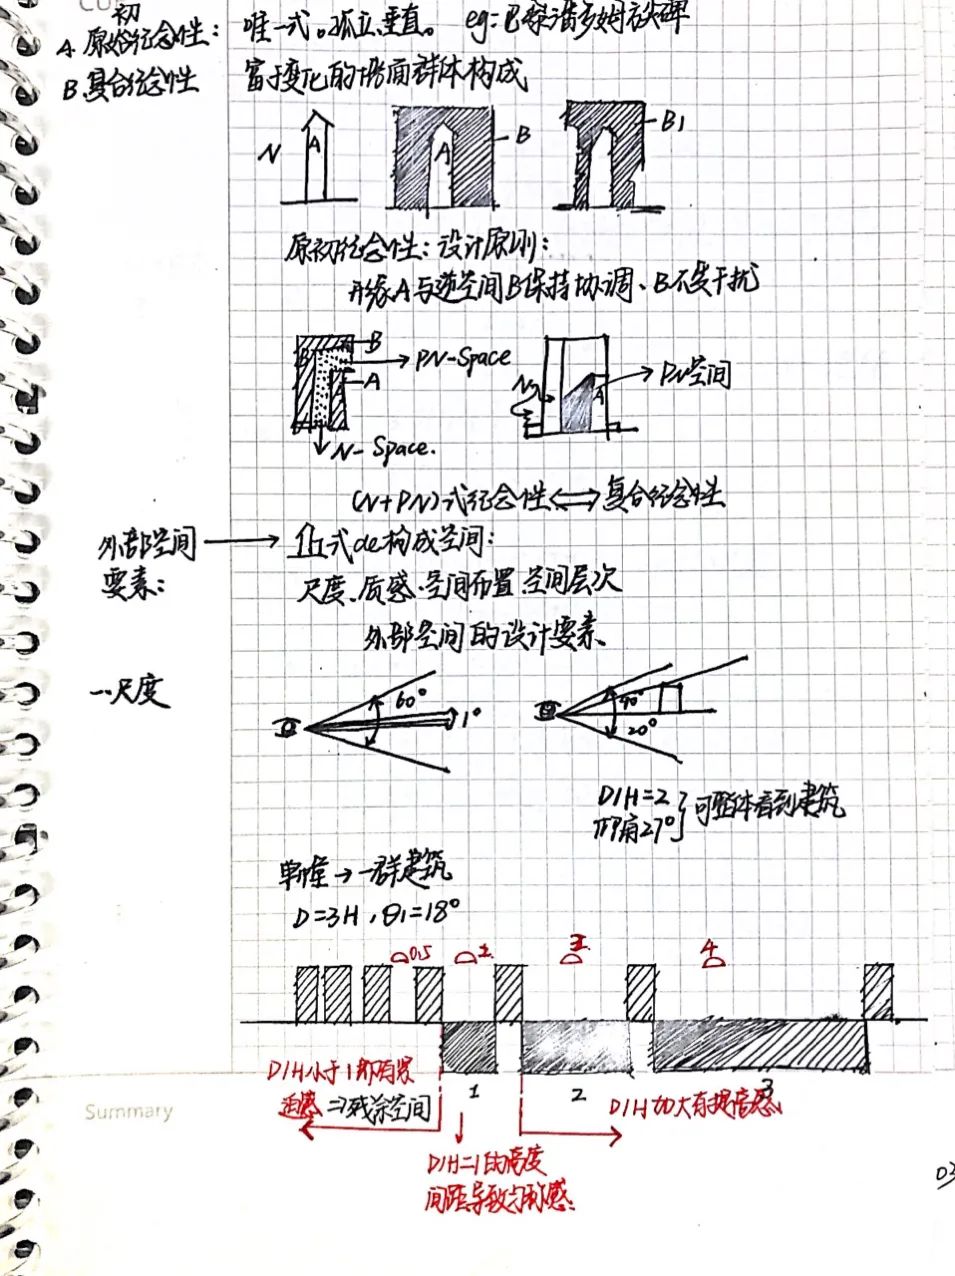 CU
初
A 原始纪念性： 唯一式。孤立、垂直。 eg：巴黎协和多姆广方尖碑
B.复合纪念性 富于变化的墙面群体构成
N A A B B1
原初纪念性：设计原则：
形缘A与逆空间B保持协调、B不受干扰
B B PN-Space
A A
N-Space.
N PN空间
A
(N+PN)式纪念性⟺复合纪念性
外部空间 → 式de构成空间：
要素： 尺度、质感、空间布置、空间层次
外部空间的设计要素、
一、尺度
60° 1° 40° 20°
D/H=2
仰角27° } 可整体看到建筑
单幢→一群建筑
D=3H，θ1=18°
0.5 4
1 2 3
D/H小于1即有紧
迫感 ⇒残余空间
D/H加大有提高感
Summary
D/H=1的高度
间距导致匀称感
03